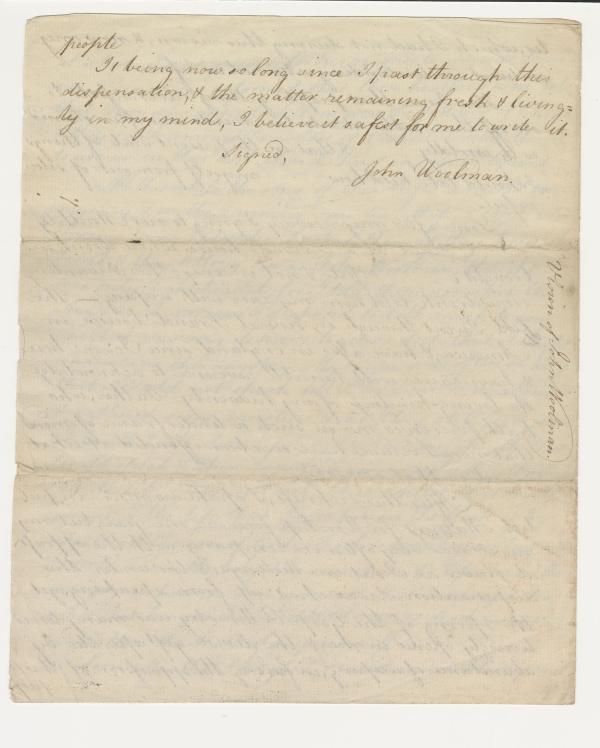 people
It being now so long since I past through this
dispensation, & the matter remaining fresh & living=
ly in my mind, I believe it safest for me to write it.
Signed,
John Woolman.
Vision of John Woolman.